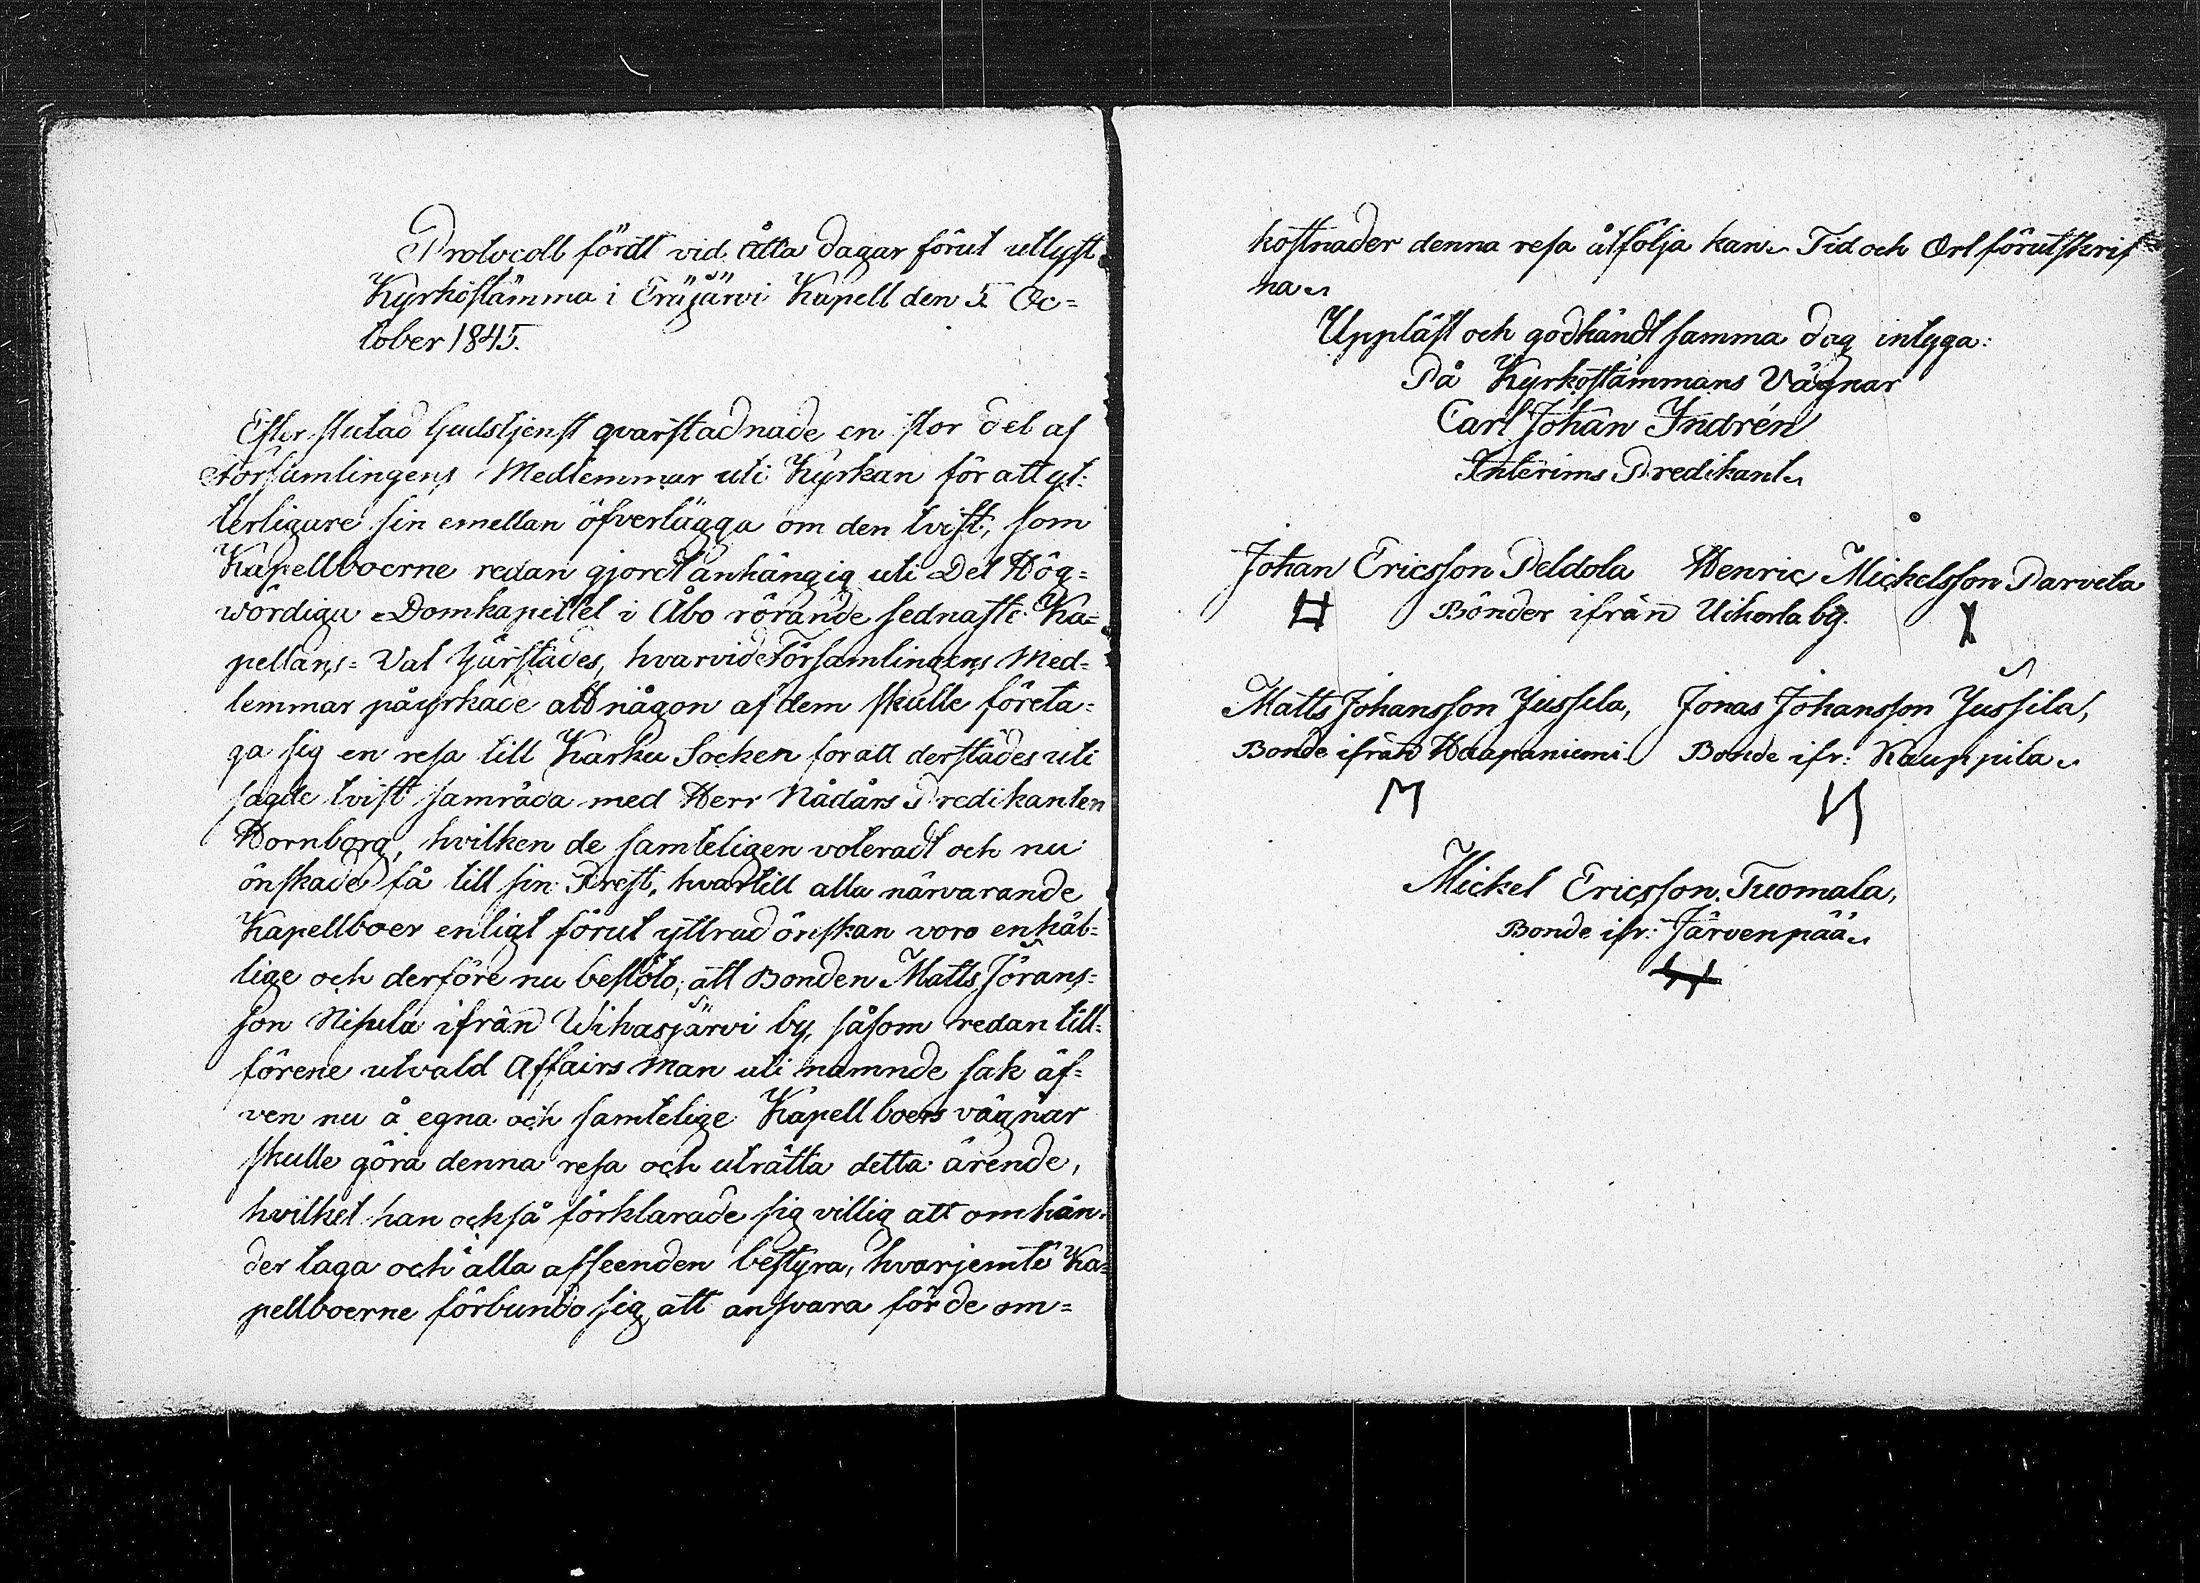 Protocoll fördt vid åtta dagar förut utlyst
Kyrkostämma i Eräjärvi Kapell den 5 Oc=
tober 1845.
Efter slutad Gudstjenst qvarstadnade en stor del af
Församlingens Medlemmar uti Kyrkan för att yt:
terligare sin emellan öfverlägga om den tvist, som
Kapellboerne redan gjordt anhängig uti Det Hög=
wördiga Domkapittel i Åbo rörande sednaste Ka=
pellans=Val härstädes, hvarvid Församlingens Med=
lemmar påyrkade att någon af dem skulle företa=
ga sig en resa till Karku Socken för att derstädes uti
sagde tvist samråda med Herr Nådårs Predikanten
Hornborg, hvilken de samteligen voteradt och nu
önskade få till sin Prest, hvartill alla närvarande
Kapellboer enligt förut yttrad önskan voro enhäl=
lige och derföre nu beslöto, att Bonden Matts Jörans=
son Nisula ifrån Wihasjärvi by, såsom redan till=
förene utvald Affairs man uti nämnde sak äf=
ven nu å egna och samtelige Kapellboers vägnar
skulle göra denna resa och uträtta detta ärende,
hvilket han också förklarade sig villig att omhän=
der taga och alla afseenden bestyra, hvarjemte Ka=
pellboerne förbundo sig att ansvara för de om=
kostnader denna resa åtfölja kan. Tid och Ort förutskrif=
na.
Uppläst och godkändt samma dag intyga:
På Kyrkostämmans Vägnar
Carl Johan Indrén
Interims Predikant.
Johan Ericsson Peldola Henric Mickelsson Parvela
Bönder ifrån Uiherla by.
Matts Johansson Jussila, Jonas Johansson Jussila,
Bonde ifrån Haapaniemi. Bonde ifr: Kauppila.
Mickel Ericsson Tuomala,
Bonde ifr: Järvenpää.